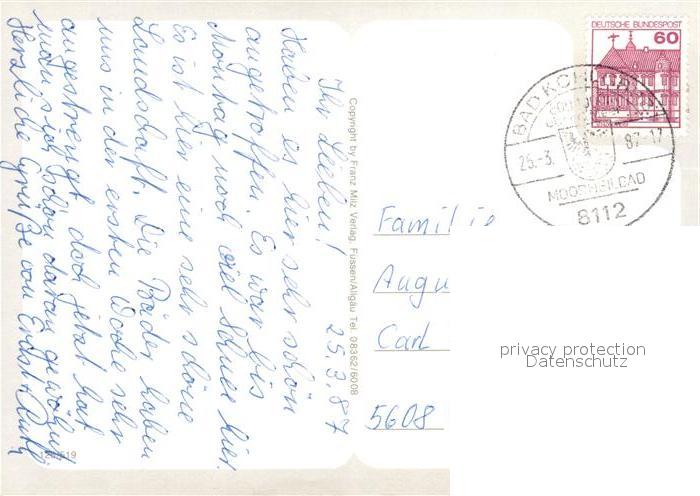 25.3.87
Ihr Lieben!
Haben es hier sehr schön
angetroffen. Es war bis
Montag noch viel Schnee hier.
Es ist hier eine sehr schöne
Landschaft. Die Bäder haben
uns in der ersten Woche sehr
angestrengt doch jetzt hat
man sich schon daran gewöhnt
Herzliche Grüße von Ernst + Ruth
Copyright by Franz Milz Verlag, Füssen/Allgäu Tel. 08362/6008
DEUTSCHE BUNDESPOST
60
BAD KOHLGRUB
26.-3. 87-17
MOORHEILBAD
8112
Familie
Augu
Carl
5608
privacy protection
Datenschutz